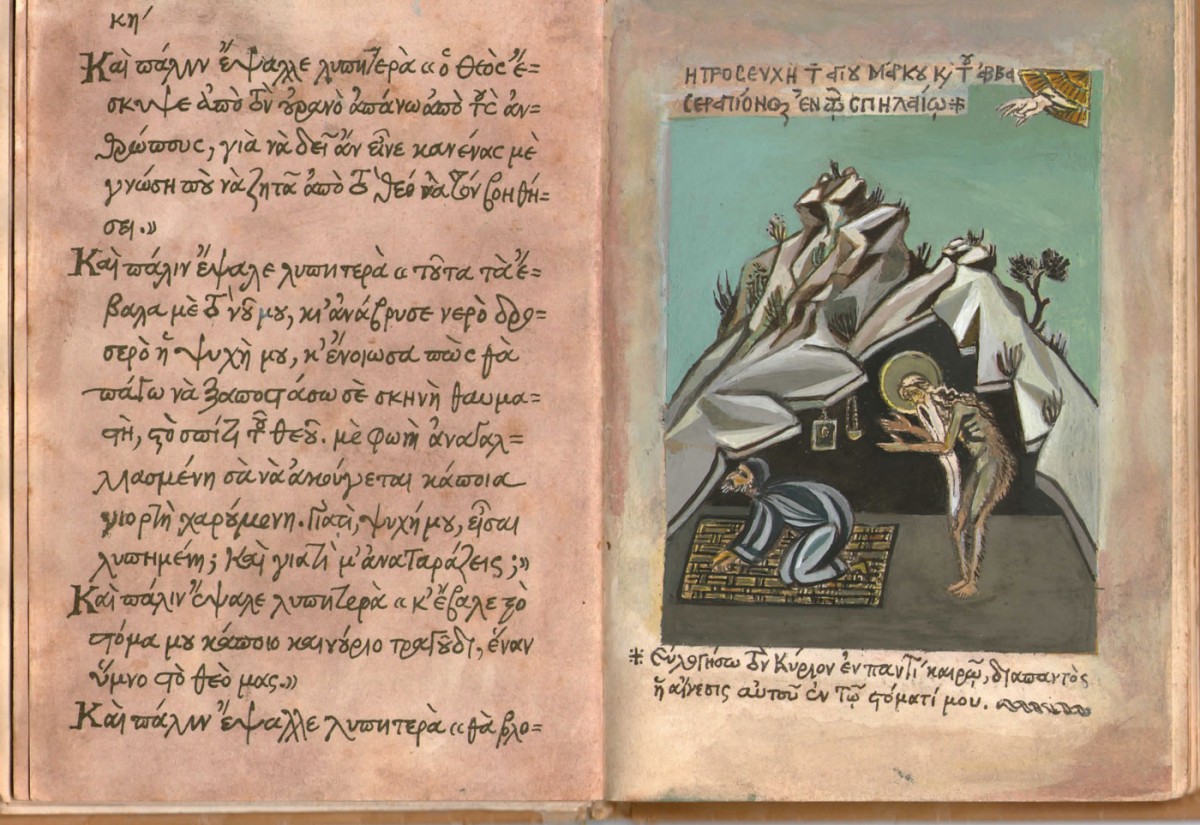 κη′
Καὶ πάλιν ἔψαλλε λυπητερὰ «ὁ θεὸς ἔ=
σκυψε ἀπὸ τὸν οὐρανὸ ἀπάνω ἀπὸ τοὺς ἀν=
θρώπους, γιὰ νὰ δεῖ ἂν εἶνε κανένας μὲ
γνώση ποὺ νὰ ζητᾶ ἀπὸ τὸ θεό νὰ τὸν βοηθή=
σει.»
Καὶ πάλιν ἔψαλε λυπητερὰ «τοῦτα τὰ ἔ=
βαλα μὲ τὸ νοῦ μου, κι' ἀνάβρυσε νερὸ δρο=
σερὸ ἡ ψυχὴ μου, κ' ἔνοιωσα πὼς θὰ
πάγω νὰ ξαποστάσω σὲ σκηνὴ θαυμα=
στὴ, στὸ σπίτι τοῦ θεοῦ. μὲ φωνὴ ἀναγαλ=
λιασμένη σὰ νὰ ἀκούγεται κάποια
γιορτὴ χαρούμενη. Γιατὶ, ψυχή μου, εἶσαι
λυπημένη; Καὶ γιατὶ μ' ἀναταράζεις;»
Καὶ πάλιν ἔψαλε λυπητερὰ «κ' ἔβαλε στὸ
στόμα μου κάποιο καινούριο τραγοῦδι, ἕναν
ὕμνο στὸ θεὸ μας.»
Καὶ πάλιν ἔψαλλε λυπητερὰ «θὰ βλο=
Η ΠΡΟΣΕΥΧΗ ΤΟΥ ΑΓΙΟΥ ΜΑΡΚΟΥ Κ͵ ΤΟΥ ἈΒΒΑ
ΣΕΡΑΠΙΟΝΟΣ ἘΝ Τῼ ΣΠΗΛΑΙῼ*
* Εὐλογήσω τὸν Κύριον ἐν παντὶ καιρῷ, διαπαντὸς
ἡ αἴνεσις αὐτοῦ ἐν τῷ στόματί μου.